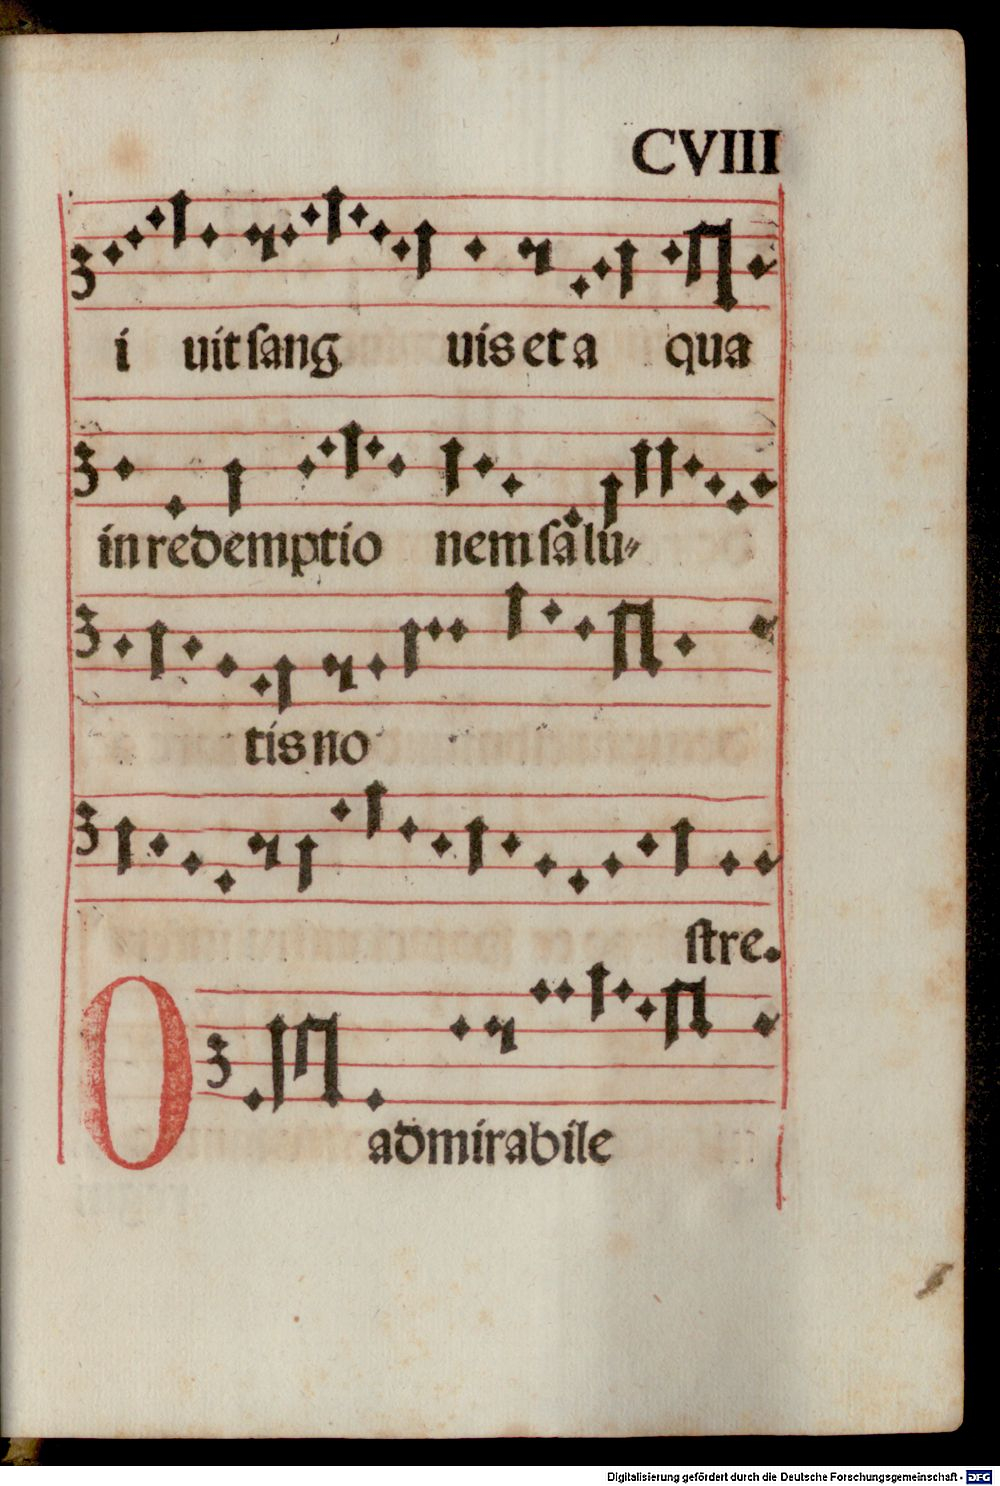 CVIII
i uit sang uis et a qua
in redemptio nem sa lu⸗
tis no
stre.
O
admirabile
Digitalisierung gefördert durch die Deutsche Forschungsgemeinschaft - DFG